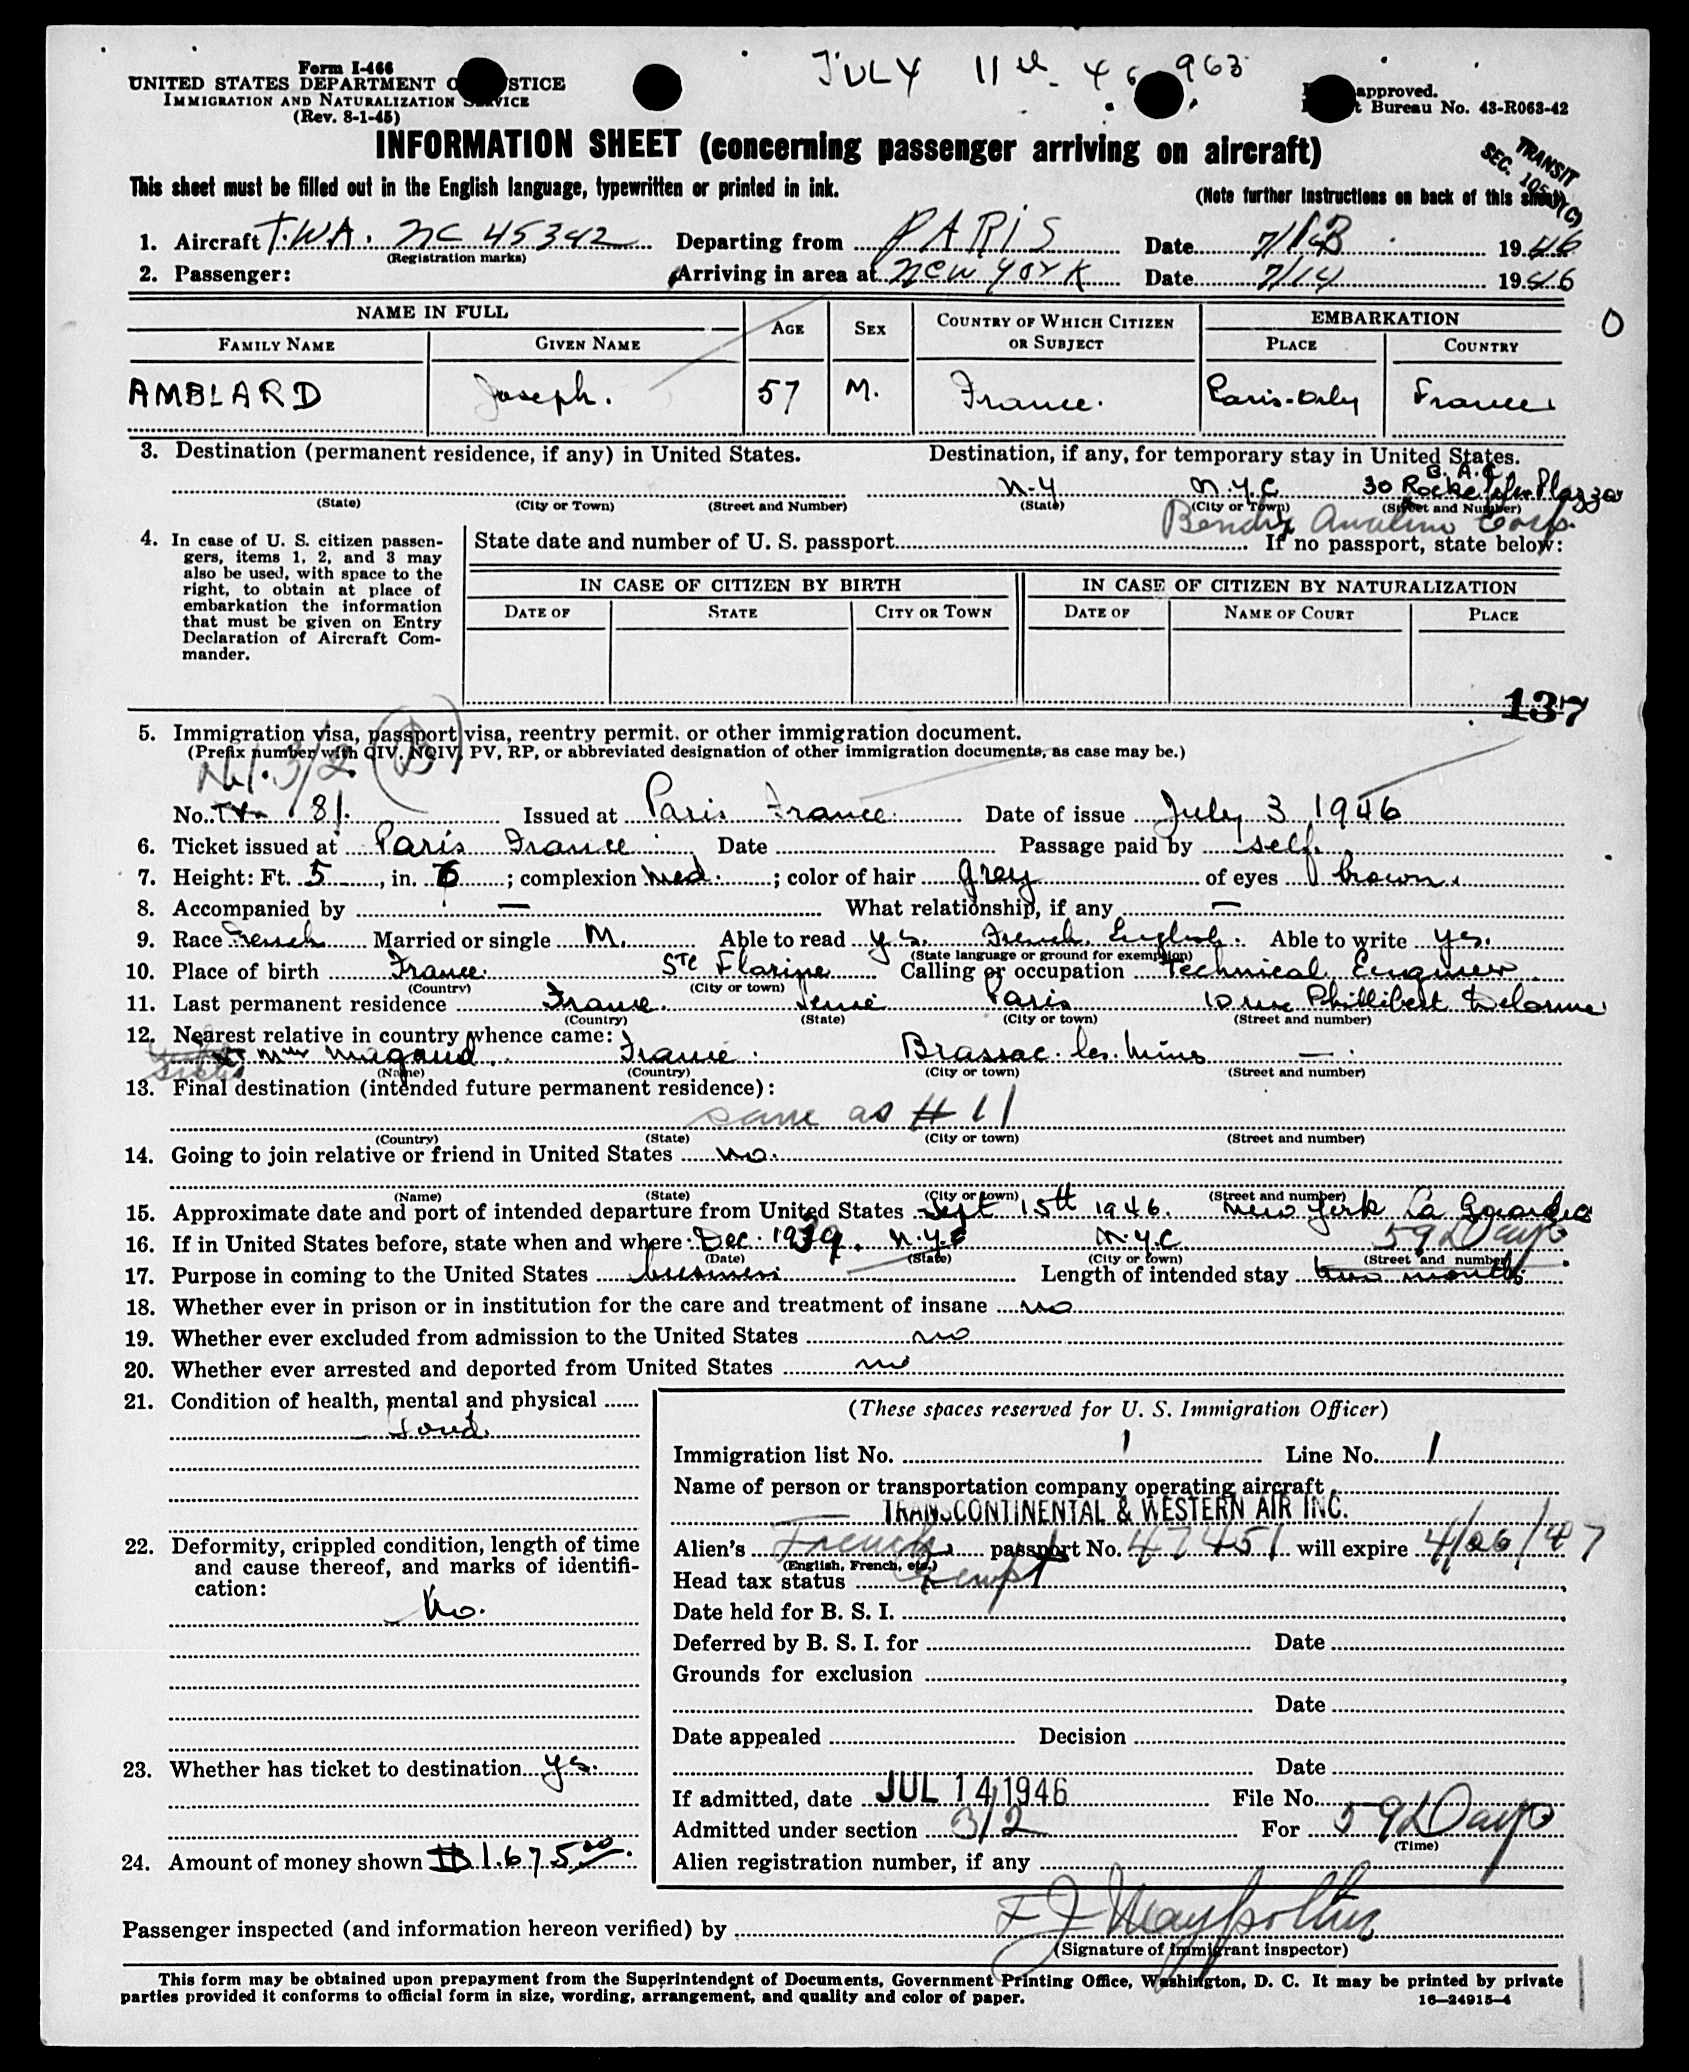 JULY 11th 46 963
Form I-466
UNITED STATES DEPARTMENT O STICE
IMMIGRATION AND NATURALIZATION S VICE
(Rev. 8-1-45)
approved.
t Bureau No. 43-R063-42
INFORMATION SHEET (concerning passenger arriving on aircraft)
TRANSIT
SEC.
This sheet must be filled out in the English language, typewritten or printed in ink.
(Note further instructions on back of this sheet)
1. Aircraft T.W.A. NC 45342 Departing from PARIS Date 7/13 1946
(Registration marks)
2. Passenger: Arriving in area at New York Date 7/14 1946
NAME IN FULL AGE SEX COUNTRY OF WHICH CITIZEN OR SUBJECT EMBARKATION O
FAMILY NAME GIVEN NAME PLACE COUNTRY
AMBLARD Joseph. 57 M. France. Paris-Orly France
3. Destination (permanent residence, if any) in United States. Destination, if any, for temporary stay in United States.
B. A. C
N.Y N.Y.C 30 Rockefeller Plazza
(State) (City or Town) (Street and Number) (State) (City or Town) (Street and Number)
Bendix Aviation Corp.
4. In case of U. S. citizen passengers, items 1, 2, and 3 may also be used, with space to the right, to obtain at place of embarkation the information that must be given on Entry Declaration of Aircraft Commander.
State date and number of U. S. passport If no passport, state below:
IN CASE OF CITIZEN BY BIRTH IN CASE OF CITIZEN BY NATURALIZATION
DATE OF STATE CITY OR TOWN DATE OF NAME OF COURT PLACE
137
5. Immigration visa, passport visa, reentry permit. or other immigration document.
(Prefix number with QIV, NQIV, PV, RP, or abbreviated designation of other immigration documents, as case may be.)
3/2 (B)
No. 81. Issued at Paris France Date of issue July 3 1946
6. Ticket issued at Paris France Date Passage paid by self.
7. Height: Ft. 5, in. 6; complexion med.; color of hair grey of eyes brown.
8. Accompanied by — What relationship, if any —
9. Race French Married or single M. Able to read yes. French. English. Able to write yes.
(State language or ground for exemption)
10. Place of birth France. Ste Florine Calling or occupation Technical Engineer
(Country) (City or town)
11. Last permanent residence France. Seine Paris 10 rue Phillibert Delorme
(Country) (State) (City or town) (Street and number)
12. Nearest relative in country whence came:
Mme Magaud. France. Brassac-les-Mines —
(Name) (Country) (City or town) (Street and number)
13. Final destination (intended future permanent residence):
same as # 11
(Country) (State) (City or town) (Street and number)
14. Going to join relative or friend in United States no.
(Name) (State) (City or town) (Street and number)
15. Approximate date and port of intended departure from United States Sept 15th 1946. New York La Guardia
16. If in United States before, state when and where: Dec. 1939. N.Y.C N.Y.C. 59 Days
(Date) (State) (City or town) (Street and number)
17. Purpose in coming to the United States business Length of intended stay two months
18. Whether ever in prison or in institution for the care and treatment of insane no
19. Whether ever excluded from admission to the United States no
20. Whether ever arrested and deported from United States no
21. Condition of health, mental and physical
Good.
(These spaces reserved for U. S. Immigration Officer)
Immigration list No. 1 Line No. 1
Name of person or transportation company operating aircraft
TRANSCONTINENTAL & WESTERN AIR INC.
22. Deformity, crippled condition, length of time and cause thereof, and marks of identification:
No.
Alien's French passport No. 47451 will expire 4/26/47
(English, French, etc.)
Head tax status Exempt
Date held for B. S. I.
Deferred by B. S. I. for Date
Grounds for exclusion
Date
Date appealed Decision
Date
23. Whether has ticket to destination yes.
If admitted, date JUL 14 1946 File No.
Admitted under section 3/2 For 59 Days
(Time)
24. Amount of money shown $1.675.00
Alien registration number, if any
Passenger inspected (and information hereon verified) by
(Signature of immigrant inspector)
This form may be obtained upon prepayment from the Superintendent of Documents, Government Printing Office, Washington, D. C. It may be printed by private
parties provided it conforms to official form in size, wording, arrangement, and quality and color of paper. 16—24915-4